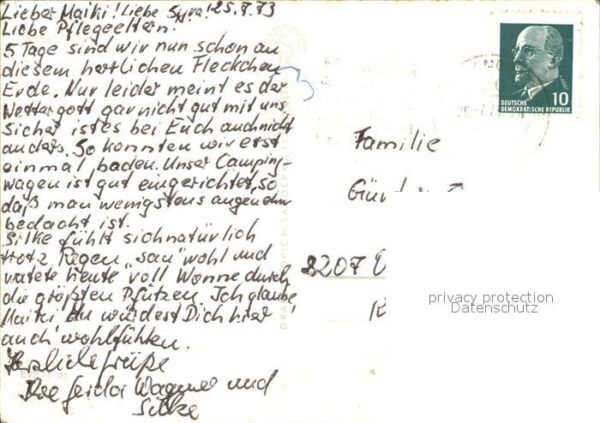 Lieber Maiki! Liebe Syra! 25.7.73
Liebe Pflegeeltern.
5 Tage sind wir nun schon an
diesem herrlichen Fleckchen
Erde. Nur leider meint es der
Wettergott gar nicht gut mit uns
Sicher ist es bei Euch auch nicht
anders. So konnten wir erst
einmal baden. Unser Camping-
wagen ist gut eingerichtet, so
daß man wenigstens angenehm
bedacht ist.
Silke fühlt sich natürlich
trotz Regen "sau" wohl und
watete heute voll Wonne durch
die größten Pfützen. Ich glaube,
Maiki du würdest Dich hier
auch wohlfühlen.
Herzliche Grüße
Ihre Gerda Wagner und
Silke
10
DEUTSCHE
DEMOKRATISCHE REPUBLIK
Familie
8207
privacy protection
Datenschutz